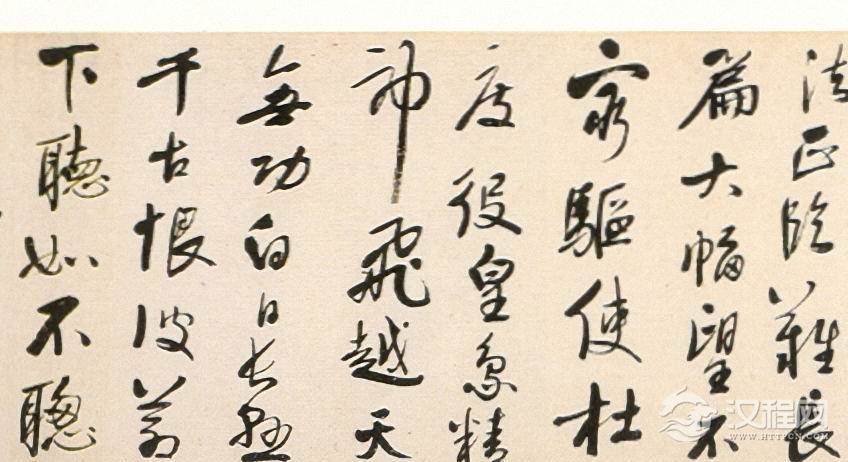 法正臨難長
篇大幅望不
窮驅使杜
度役皇象精
神飛越天
無功白日長懸
千古恨彼前
下聽如不聰
汉程网
WWW.HTTPCN.COM